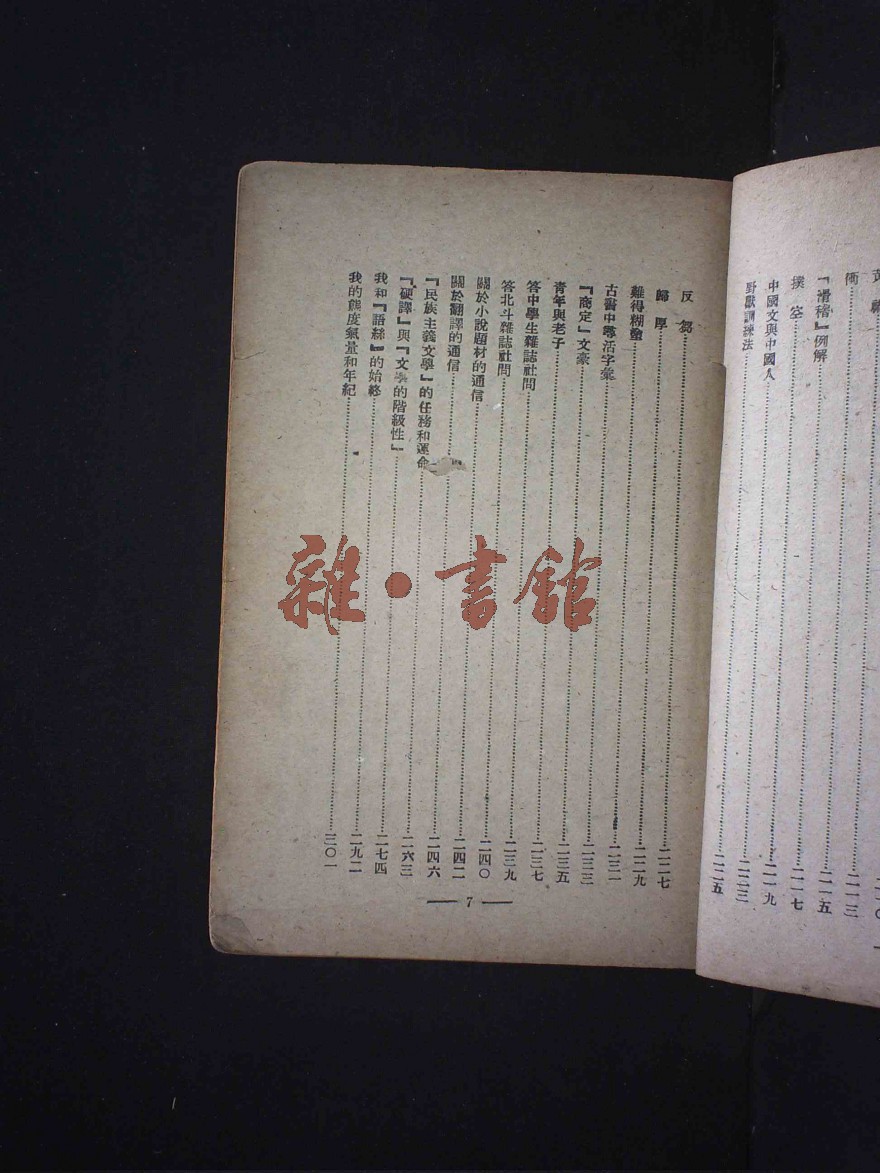 黃禍……二一三
衝……二一五
『滑稽』例解……二一七
撲空……二一九
中國文與中國人……二二三
野獸訓練法……二二五
反芻……二二七
歸厚……二二九
難得糊塗……二三一
古書中尋活字彙……二三三
『商定』文豪……二三五
青年與老子……二三七
答中學生雜誌社問……二三九
答北斗雜誌社問……二四〇
關於小說題材的通信……二四二
關於翻譯的通信……二四六
『民族主義文學』的任務和運命……二六三
『硬譯』與『文學的階級性』……二七四
我和『語絲』的始終……二九二
我的態度氣量和年紀……三〇一
— 7 —
雜·書館